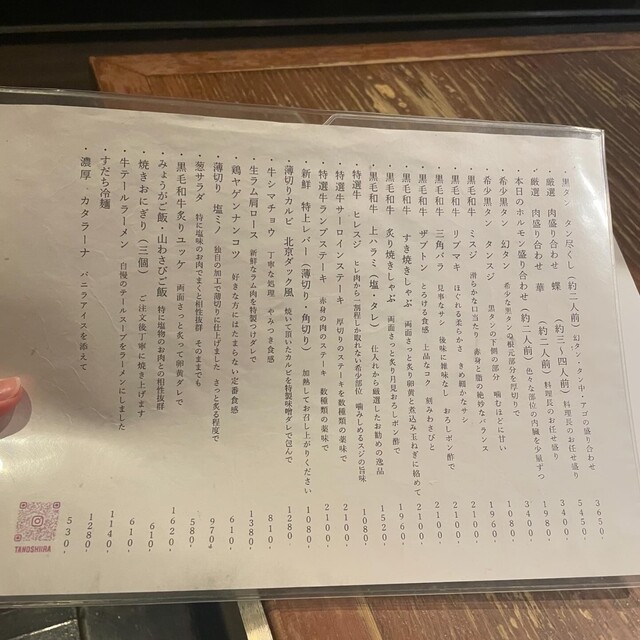 ・黒タン　タン尽くし（約二人前）幻タン・タン中・アゴの盛り合わせ　3650,
・厳選　肉盛り合わせ　蝶　（約三、四人前）料理長のお任せ盛り　5450,
・厳選　肉盛り合わせ　華　（約二人前）料理長のお任せ盛り　3400,
・本日のホルモン盛り合わせ（約二人前）色々な部位の内臓を少量ずつ　1980,
・希少黒タン　幻タン　希少な黒タンの根元部分を厚切りで　3400,
・希少黒タン　タンスジ　黒タンの下側の部分　噛むほどに甘い　1080,
・黒毛和牛　ミスジ　滑らかな口当たり　赤身と脂の絶妙なバランス　1960,
・黒毛和牛　リブマキ　ほぐれる柔らかさ　きめ細かなサシ　2100,
・黒毛和牛　三角バラ　見事なサシ　後味に雑味なし　おろしポン酢で　2100,
・黒毛和牛　ザブトン　とろける食感　上品なコク　刻みわさびと　2100,
・黒毛和牛　すき焼きしゃぶ　両面さっと炙り卵黄と煮込み玉ねぎに絡めて　2100,
・黒毛和牛　炙り焼きしゃぶ　両面さっと炙り月見おろしポン酢で　1960,
・黒毛和牛　上ハラミ（塩・タレ）　仕入れから厳選したお勧めの逸品　1520,
・特選牛　ヒレスジ　ヒレ肉から一割程しか取れない希少部位　噛みしめるスジの旨味　1080,
・特選牛サーロインステーキ　厚切りのステーキを数種類の薬味で　2100,
・特選牛ランプステーキ　赤身の肉のステーキ　数種類の薬味で　2100,
・新鮮　特上レバー（薄切り・角切り）　加熱してお召し上がりください　1080,
・薄切りカルビ　北京ダック風　焼いて頂いたカルビを特製味噌ダレで包んで　1280,
・牛シマチョウ　丁寧な処理　やみつき食感　810,
・生ラム肩ロース　新鮮なラム肉を特製つけダレで　1380,
・鶏ヤゲンナンコツ　好きな方にはたまらない定番食感　610,
・薄切り　塩ミノ　独自の加工で薄切りに仕上げました　さっと炙る程度で　970,
・葱サラダ　特に塩味のお肉でまくと相性抜群　そのままでも　580,
・黒毛和牛炙りユッケ　両面さっと炙って卵黄ダレで　1620,
・みょうがご飯・山わさびご飯　特に塩物のお肉との相性抜群　610,
・焼きおにぎり（三個）　ご注文後丁寧に焼き上げます　610,
・牛テールラーメン　自慢のテールスープをラーメンにしました　1140,
・すだち冷麺　1280,
・濃厚　カタラーナ　バニラアイスを添えて　530,
TANOSHIIRA